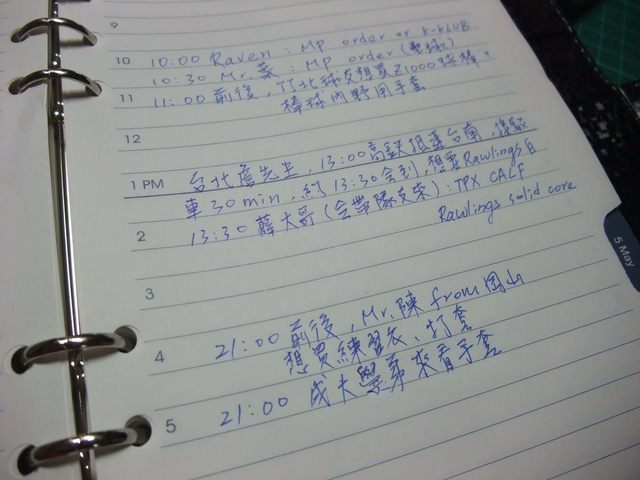 9
10 10:00 Raven : Mp order or K-KLUB
10:30 Mr.葉 : Mp order (壘球)
11 11:00 前後, 竹北球友想買Z1000球棒,
棒球內野用手套
12
1 PM 台北詹先生, 13:00高鐵抵達台南, 接駁
車30min, 約13:30會到, 想要Rawlings白
2 13:30 薛大哥(會帶隊友來): TPX CALF
Rawlings solid core
3
4 21:00 前後, Mr.陳 from岡山
想買練習衣、打套
5 21:00 成大學弟來看手套
5 May